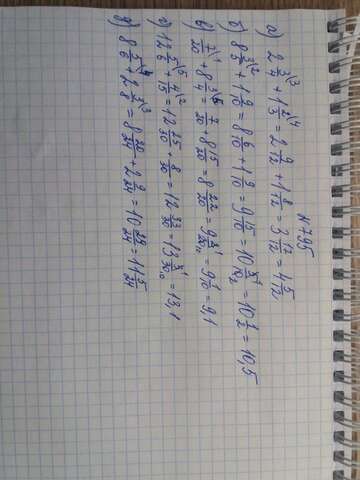 N 795
а) 2 3/4 \3 + 1 2/3 \4 = 2 9/12 + 1 8/12 = 3 17/12 = 4 5/12
б) 8 3/5 \2 + 1 9/10 = 8 6/10 + 1 9/10 = 9 15/10 = 10 5/10 = 10 1/2 = 10,5
в) 7/20 \1 + 8 3/4 \5 = 7/20 + 8 15/20 = 8 22/20 = 9 2/20 = 9 1/10 = 9,1
г) 12 5/6 \5 + 4/15 \2 = 12 25/30 + 8/30 = 12 33/30 = 13 3/30 = 13,1
д) 8 5/6 \4 + 2 3/8 \3 = 8 20/24 + 2 9/24 = 10 29/24 = 11 5/24